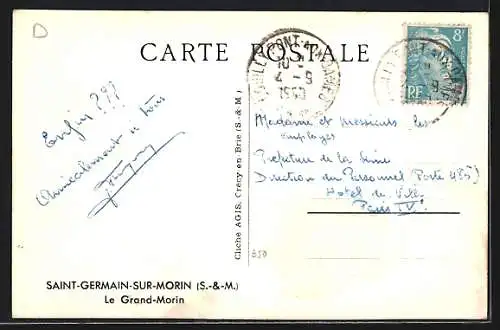 D
CARTE POSTALE
8F
RF
COUILLY-PONT-AUX-DAMES
4-9
1950
Enfin ???
Amicalement à tous
Cliché AGIS, Crécy-en-Brie (S.-&-M.)
Madame et messieurs les
employés
Préfecture de la Seine
Direction du Personnel (Porte 485)
Hotel de Ville
Paris IV°
SAINT-GERMAIN-SUR-MORIN (S.-&-M.)
Le Grand-Morin